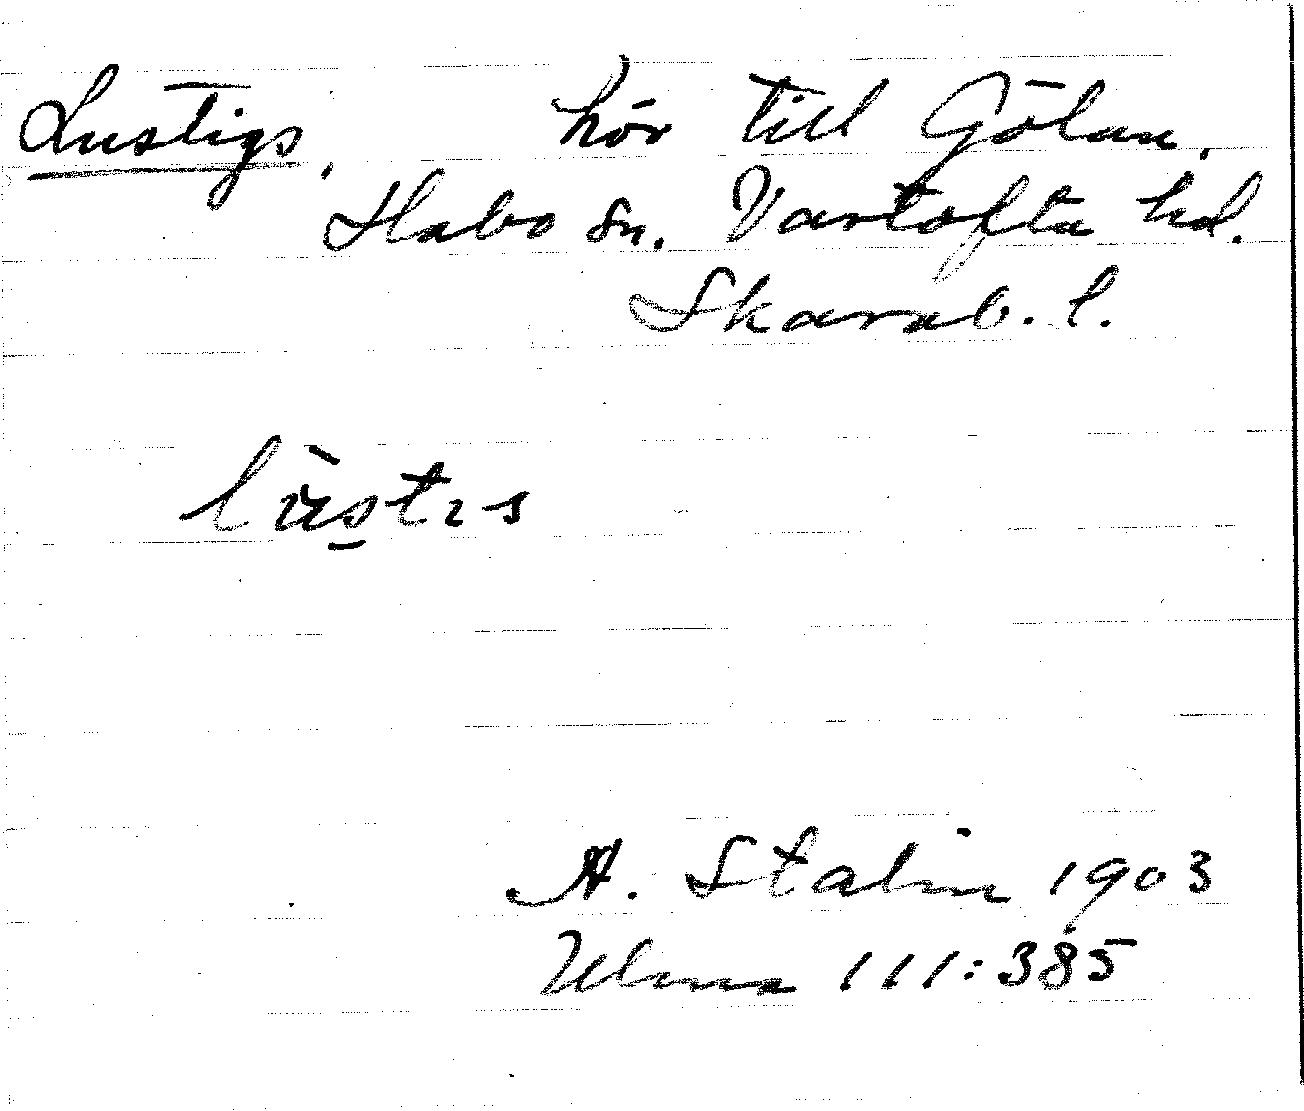 Lustigs, hör till Götan,
Habo sn. Vartofta hd.
Skarab. l.
A. Stalin 1903
Ulma 111:385